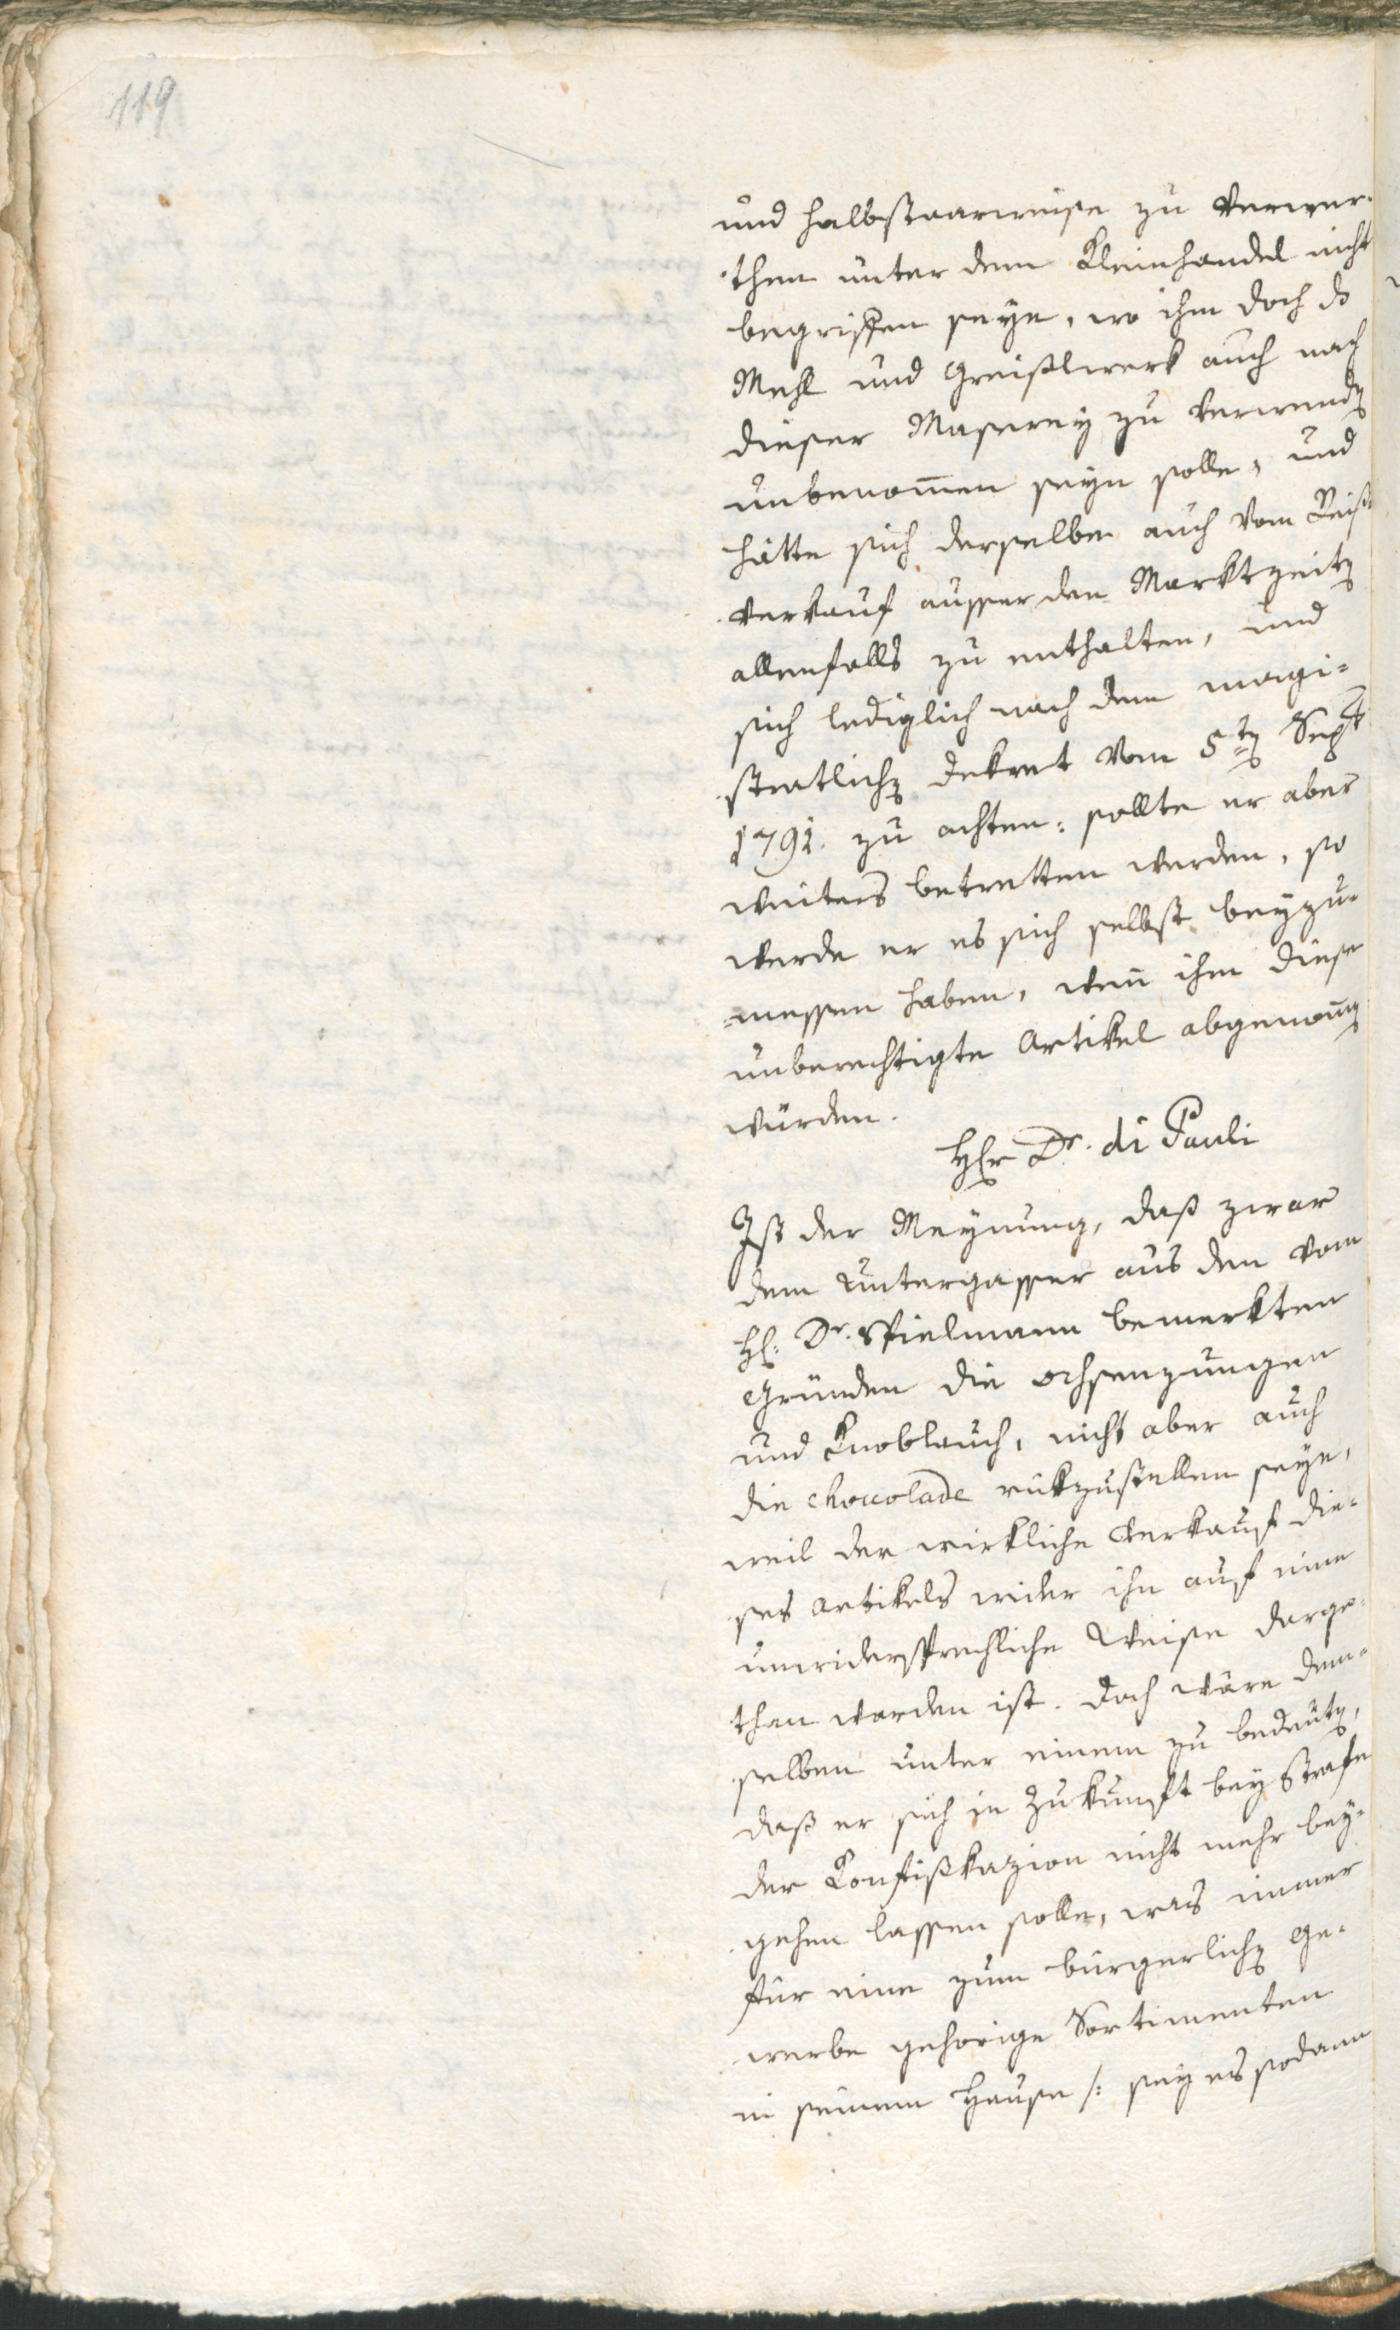 119
und halbstaarweise zu verwer-
then unter dem Kleinhandel nicht
begriffen seye, wo ihm doch ds
Mehl und Greißlwerk auch nach
dieser Maserey zu verwenden
unbenommen seyn solle, und
hätte sich derselbe auch vom Reiß
verkauf ausser den Marktzeiten
allenfalls zu enthalten, und
sich lediglich nach dem magi-
stratlichen Dekret vom 5ten Sept
1791. zu achten: sollte er aber
weiters betretten werden, so
werde er es sich selbst beyzu-
messen haben, wenn ihm diese
unberechtigte Artikel abgenommen
würden.
Hr Dr. di Pauli
Ist der Meynung, daß zwar
dem Untergasser aus den vom
H: Dr. Spielmann bemerkten
Gründen die Ochsenzungen
und Knoblauch, nicht aber auch
die choccolade rükzustellen seye,
weil der wirkliche Verkauf die-
ses Artikels wider ihn auf eine
unwidersprechliche Weise darge-
than worden ist. Doch wäre dem-
selben unter einem zu bedeuten,
daß er sich in Zukunft bey Strafe
der Konfißkazion nicht mehr bey-
gehen lassen solle, was immer
für eine zum bürgerlichen Ge-
werbe gehörige Sortimenten
in seinem Hause /: sey es sodann